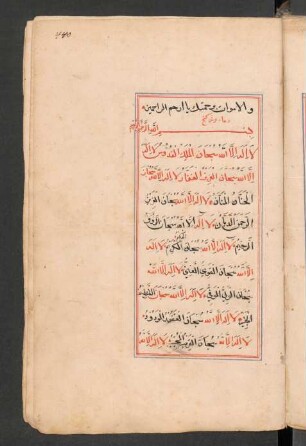 والاموات برحمتك يا ارحم الراحمين
بسم الله الرحمن الرحيم
لا اله الا الله سبحان الملك القدوس لا اله
الا الله سبحان العزيز الغفار لا اله الا الله سبحان
الحنان المنان لا اله الا الله سبحان العزيز
الرحمن الديان لا اله الا الله سبحان
الرحيم لا اله الا الله سبحان الكريم لا اله
الا الله سبحان القوي الغني لا اله الا الله
سبحان الولي الوفي لا اله الا الله سبحان اللطيف
الخبير لا اله الا الله سبحان الغفور الودود
لا اله الا الله سبحان القريب المجيب لا اله الا الله